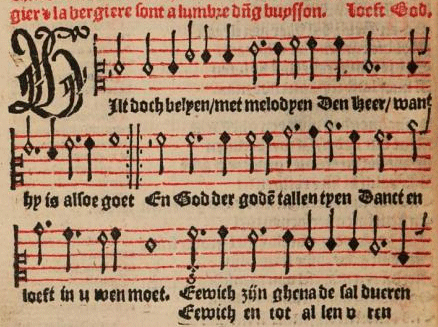 gier & la bergiere sont a lumbre dũg buysson. loeft God.
WIlt doch belyen/met melodyen Den heer/ want
hy is alsoe goet En God der godẽ tallen tyen Danct en
loeft in u wen moet. Eewich zijn ghena de sal dueren
Eewich en tot al len v ren